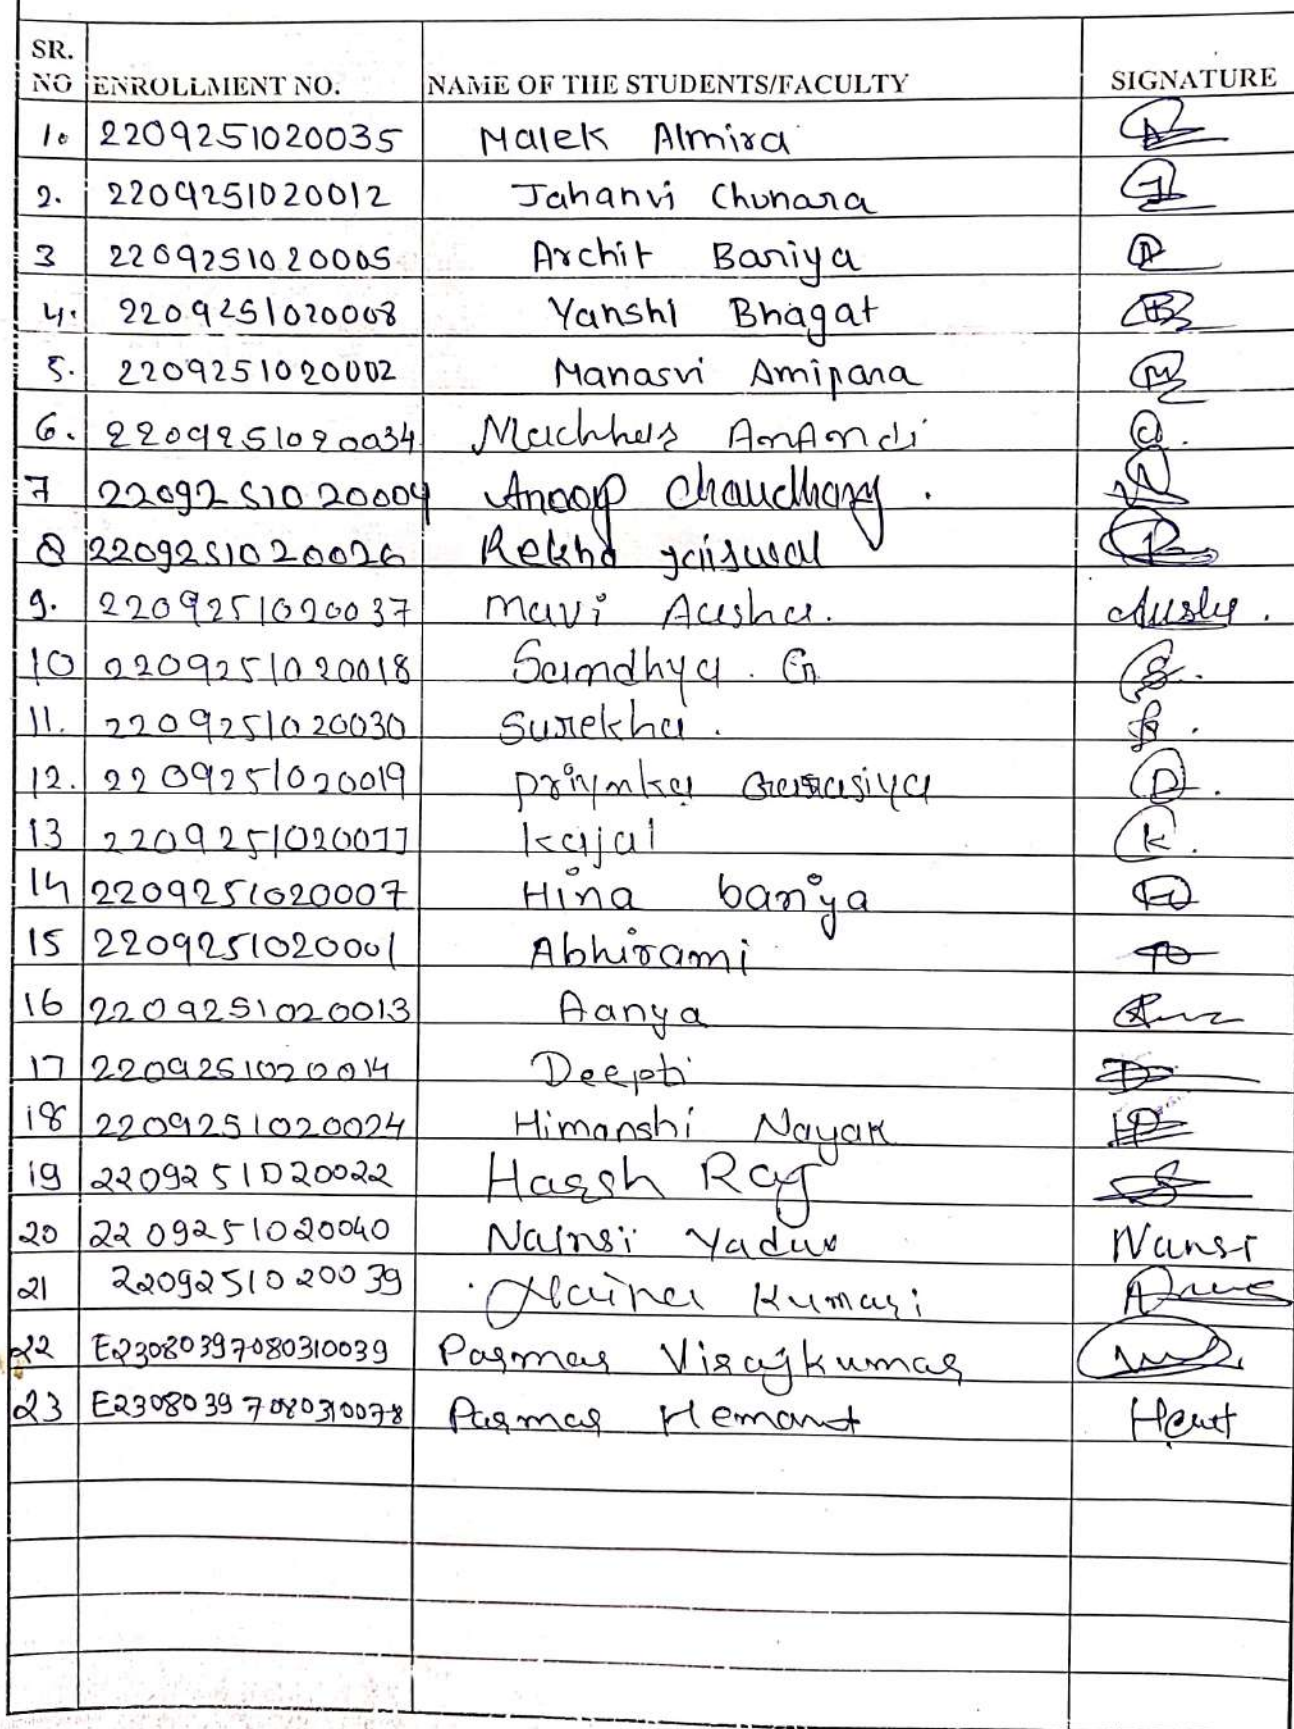 SR. NO ENROLLMENT NO. NAME OF THE STUDENTS/FACULTY SIGNATURE
1. 2209251020035 Malek Almira
2. 2209251020012 Jahanvi Chunara
3 2209251020005 Archit Bariya
4. 2209251020008 Vanshi Bhagat
5. 2209251020002 Manasvi Amipara
6. 2209251020034
7 2209251020004 Anoop Chaudhary.
8 2209251020026 Rekha jaiswal
9. 2209251020037 Mavi Ausha.
10 2209251020018 Samdhya. G
11. 2209251020030 Surekha.
12. 2209251020019 priynka Garasiya
13 22092510200 kajal K.
14 2209251020007 Hina bariya
15 2209251020001 Abhirami
16 2209251020013 Aanya
17 2209251020014 Deepti
18 2209251020024 Himanshi Nayak
19 2209251020022 Harsh Raj
20 2209251020040 Nainsi Yadav Nansi
21 2209251020039 Kumari
22 E23080397080310039 Parmar Virajkumar
23 E23080397080310078 Parmar Hemant